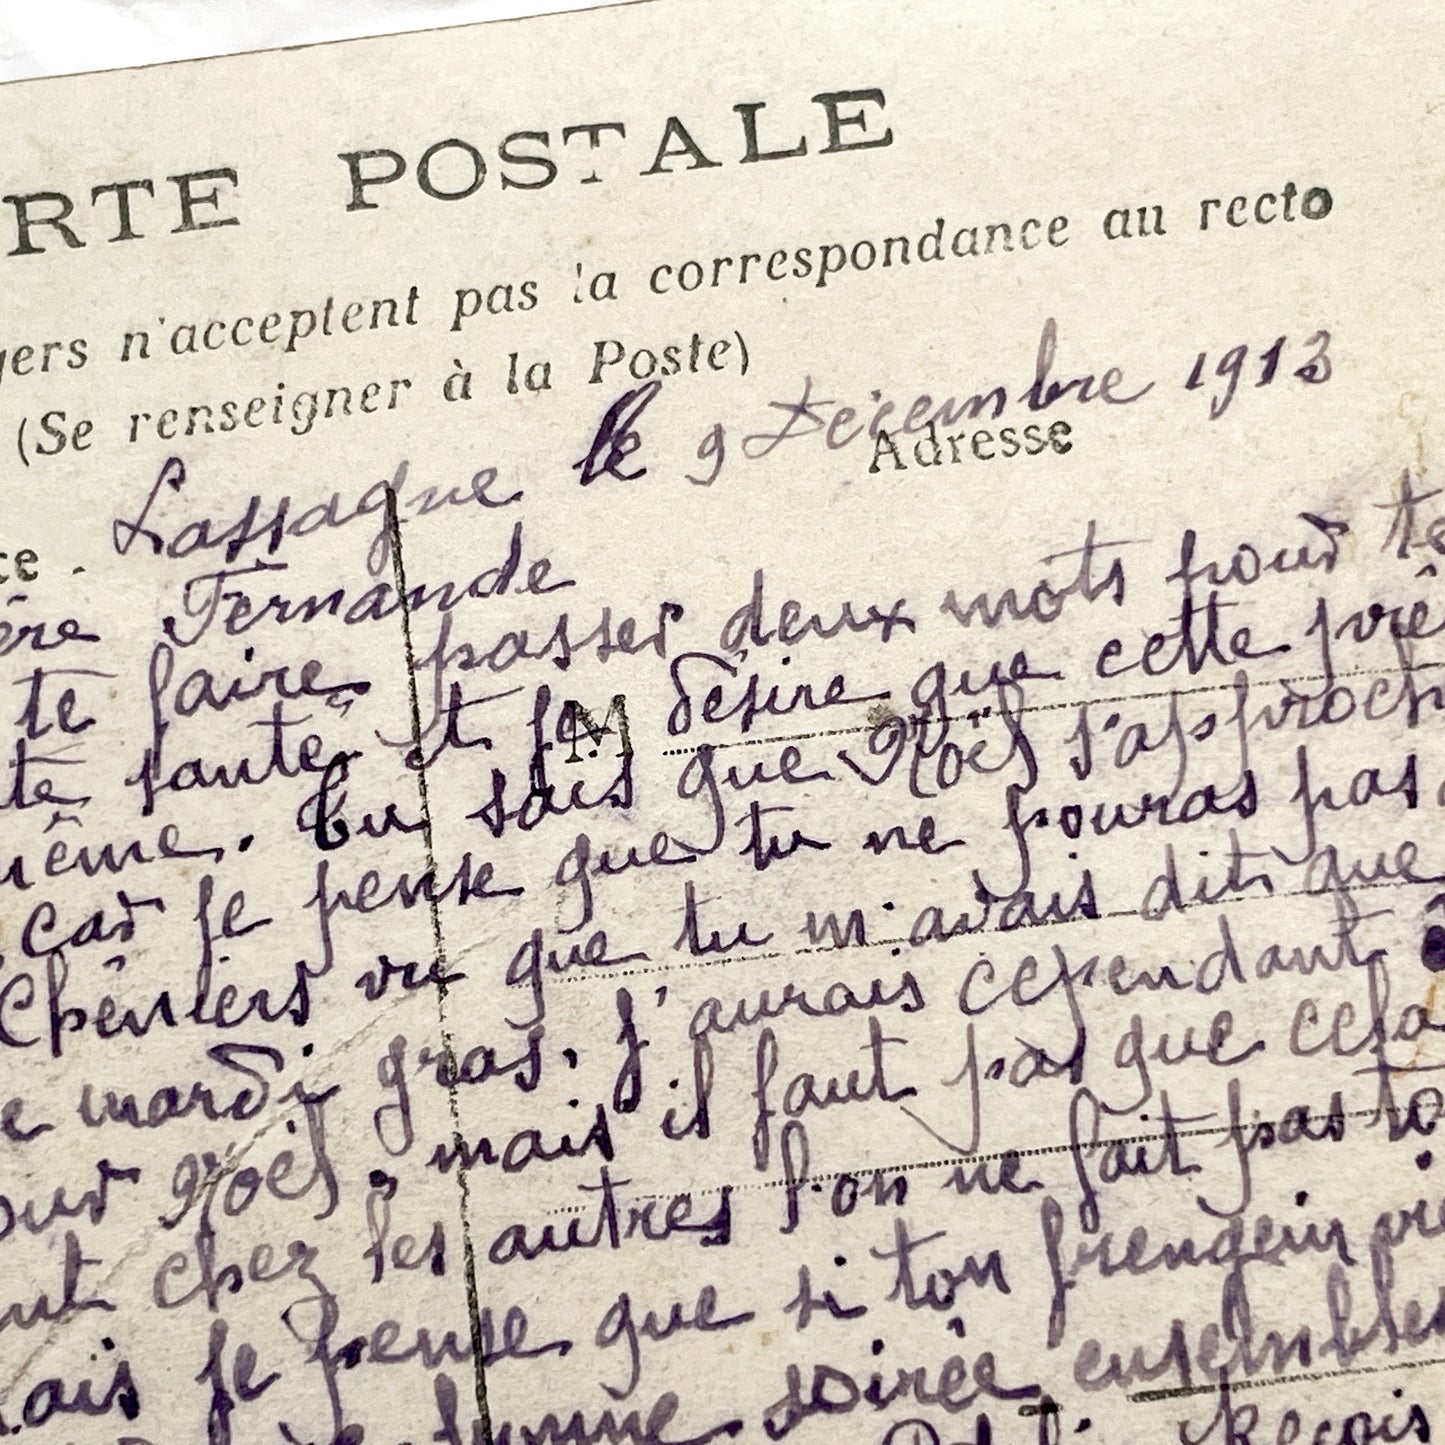 RTE POSTALE
gers n'acceptent pas la correspondance au recto
(Se renseigner à la Poste)
Lassagne le 9 Décembre 1913
Adresse
ce.
ère Fernande
te faire passer deux mots pour te
té santé et je désire que cette prê
M
même. Tu sais que Noël s'approch
car je pense que tu ne pouras pas
Chéniers vu que tu m'avais dit que
e mardi gras. j'aurais cependant
our Noël. mais il faut pas que cela
nt chez les autres l'on ne fait pas to
ais je pense que si ton
soirée ensembles
Reçois